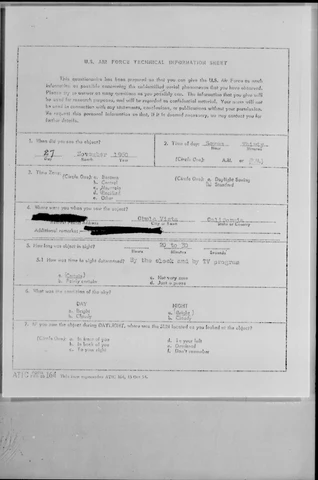 U.S. AIR FORCE TECHNICAL INFORMATION SHEET
This questionnaire has been prepared so that you can give the U.S. Air Force as much
information as possible concerning the unidentified aerial phenomenon that you have observed.
Please try to answer as many questions as you possibly can. The information that you give will
be used for research purposes, and will be regarded as confidential material. Your name will not
be used in connection with any statements, conclusions, or publications without your permission.
We request this personal information so that, if it is deemed necessary, we may contact you for
further details.
1. When did you see the object?
2. Time of day:
27 November
Day Month Year
Hour Minutes
(Circle One): A.M. or P.M.
3. Time Zone:
(Circle One): a. Eastern
b. Central
c. Mountain
d. Pacific
e. Other
(Circle One): a. Daylight Saving
b. Standard
4. Where were you when you saw the object?
Chula Vista California
City or Town State or Country
Additional remarks:
5. How long was object in sight?
Hours Minutes Seconds
5.1 How was time in sight determined? By the clock and by TV program
a. Certain
b. Fairly certain
c. Not very sure
d. Just a guess
6. What was the condition of the sky?
DAY
a. Bright
b. Cloudy
NIGHT
a. Bright
b. Cloudy
7. IF you saw the object during DAYLIGHT, where was the SUN located as you looked at the object?
(Circle One): a. In front of you
b. In back of you
c. To your right
d. To your left
e. Overhead
f. Don't remember
ATIC FORM 164